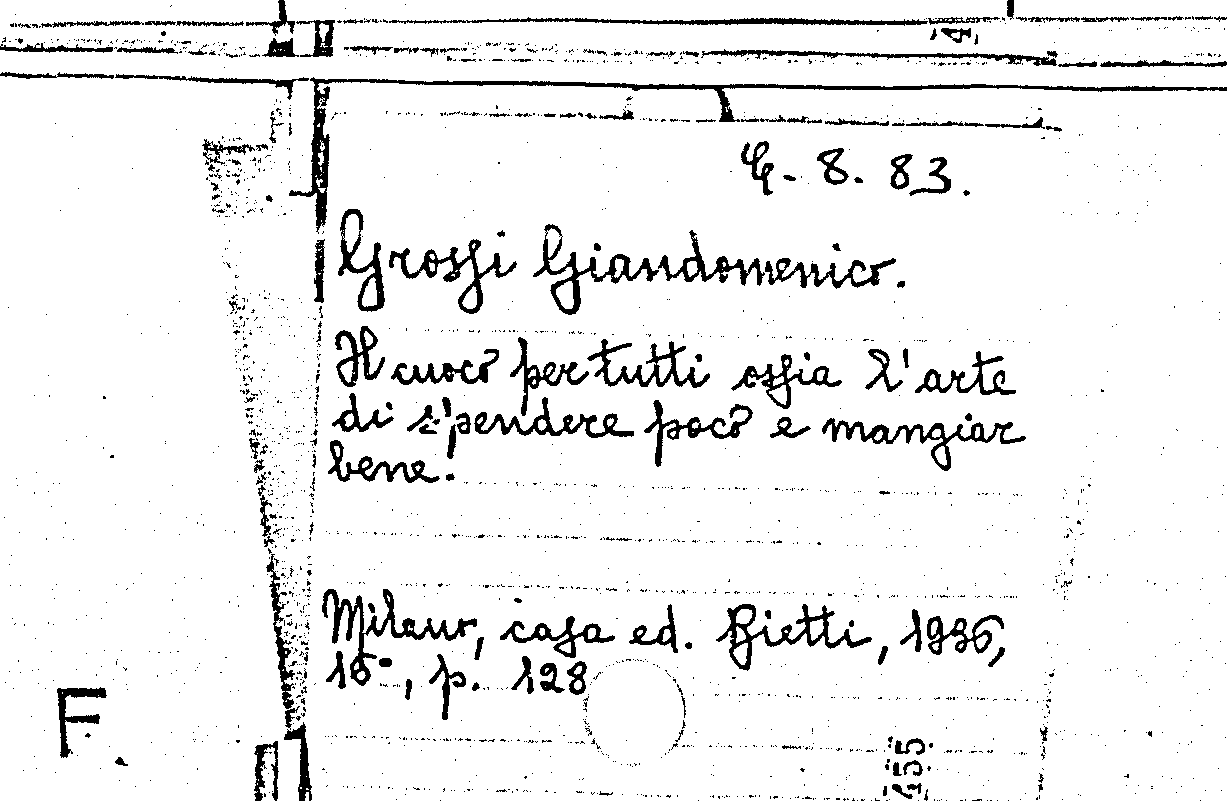 G. 8. 83.
Grossi Giandomenico.
Il cuoco per tutti ossia l'arte
di spendere poco e mangiar
bene.
Milano, casa ed. Bietti, 1936,
16°, p. 128
F.
455